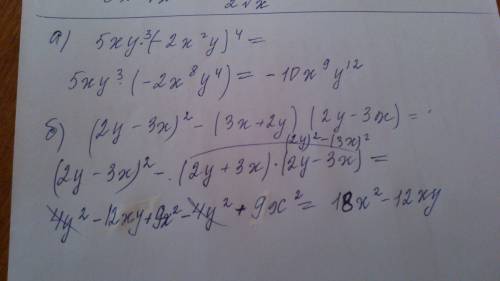 2√x
а) 5xy³·(-2x²y)⁴ =
5xy³·(-2x⁸y⁴) = -10x⁹y¹²
б) (2y - 3x)² - (3x + 2y)(2y - 3x) =
(2y)² - (3x)²
(2y - 3x)² - (2y + 3x)·(2y - 3x) =
4y² - 12xy + 9x² - 4y² + 9x² = 18x² - 12xy